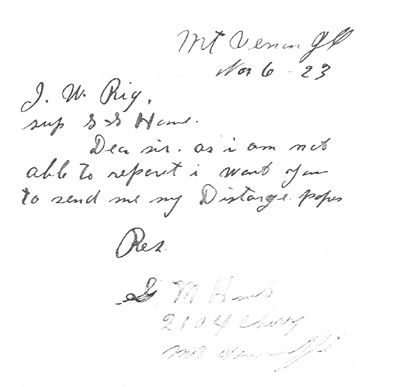 Mt Vernon Ill
Nov 6 - 23
J. W. Rig,
sup S S Home.
Dea sir. as i am not
able to reporet i want you
to send me my Distarge. papes
Res
M
2104 Cherry
Mt Vernon Ill